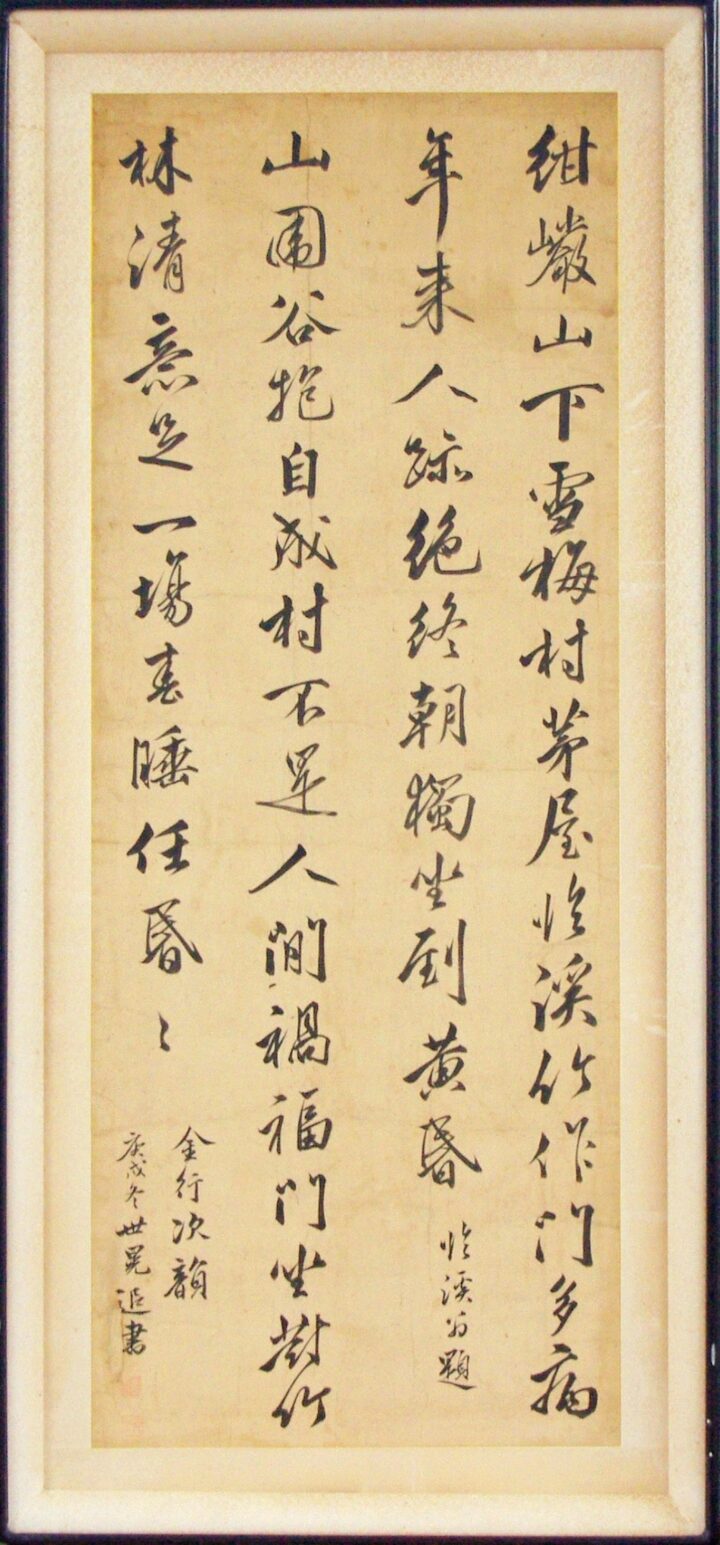 紺巖山下雪梅村茅屋臨溪竹作門多病
年來人跡絶終朝獨坐到黄昏
臨溪翁題
山圍谷抱自成村不是人間禍福門坐對竹
林清意足一場春睡任昏〻
金行次韻
庚戌冬世晃追書